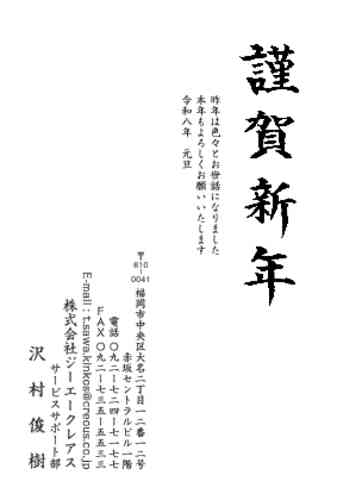 謹賀新年
昨年は色々とお世話になりました
本年もよろしくお願いいたします
令和八年　元旦
〒810-0041 福岡市中央区大名二丁目一二番一二号
赤坂セントラルビル一階
電話 〇九二-七二四-七一七七
FAX 〇九二-七三五-五五三三
E-mail：t.sawa.kinkos@creous.co.jp
株式会社ジーエークレアス
サービスサポート部
沢村俊樹